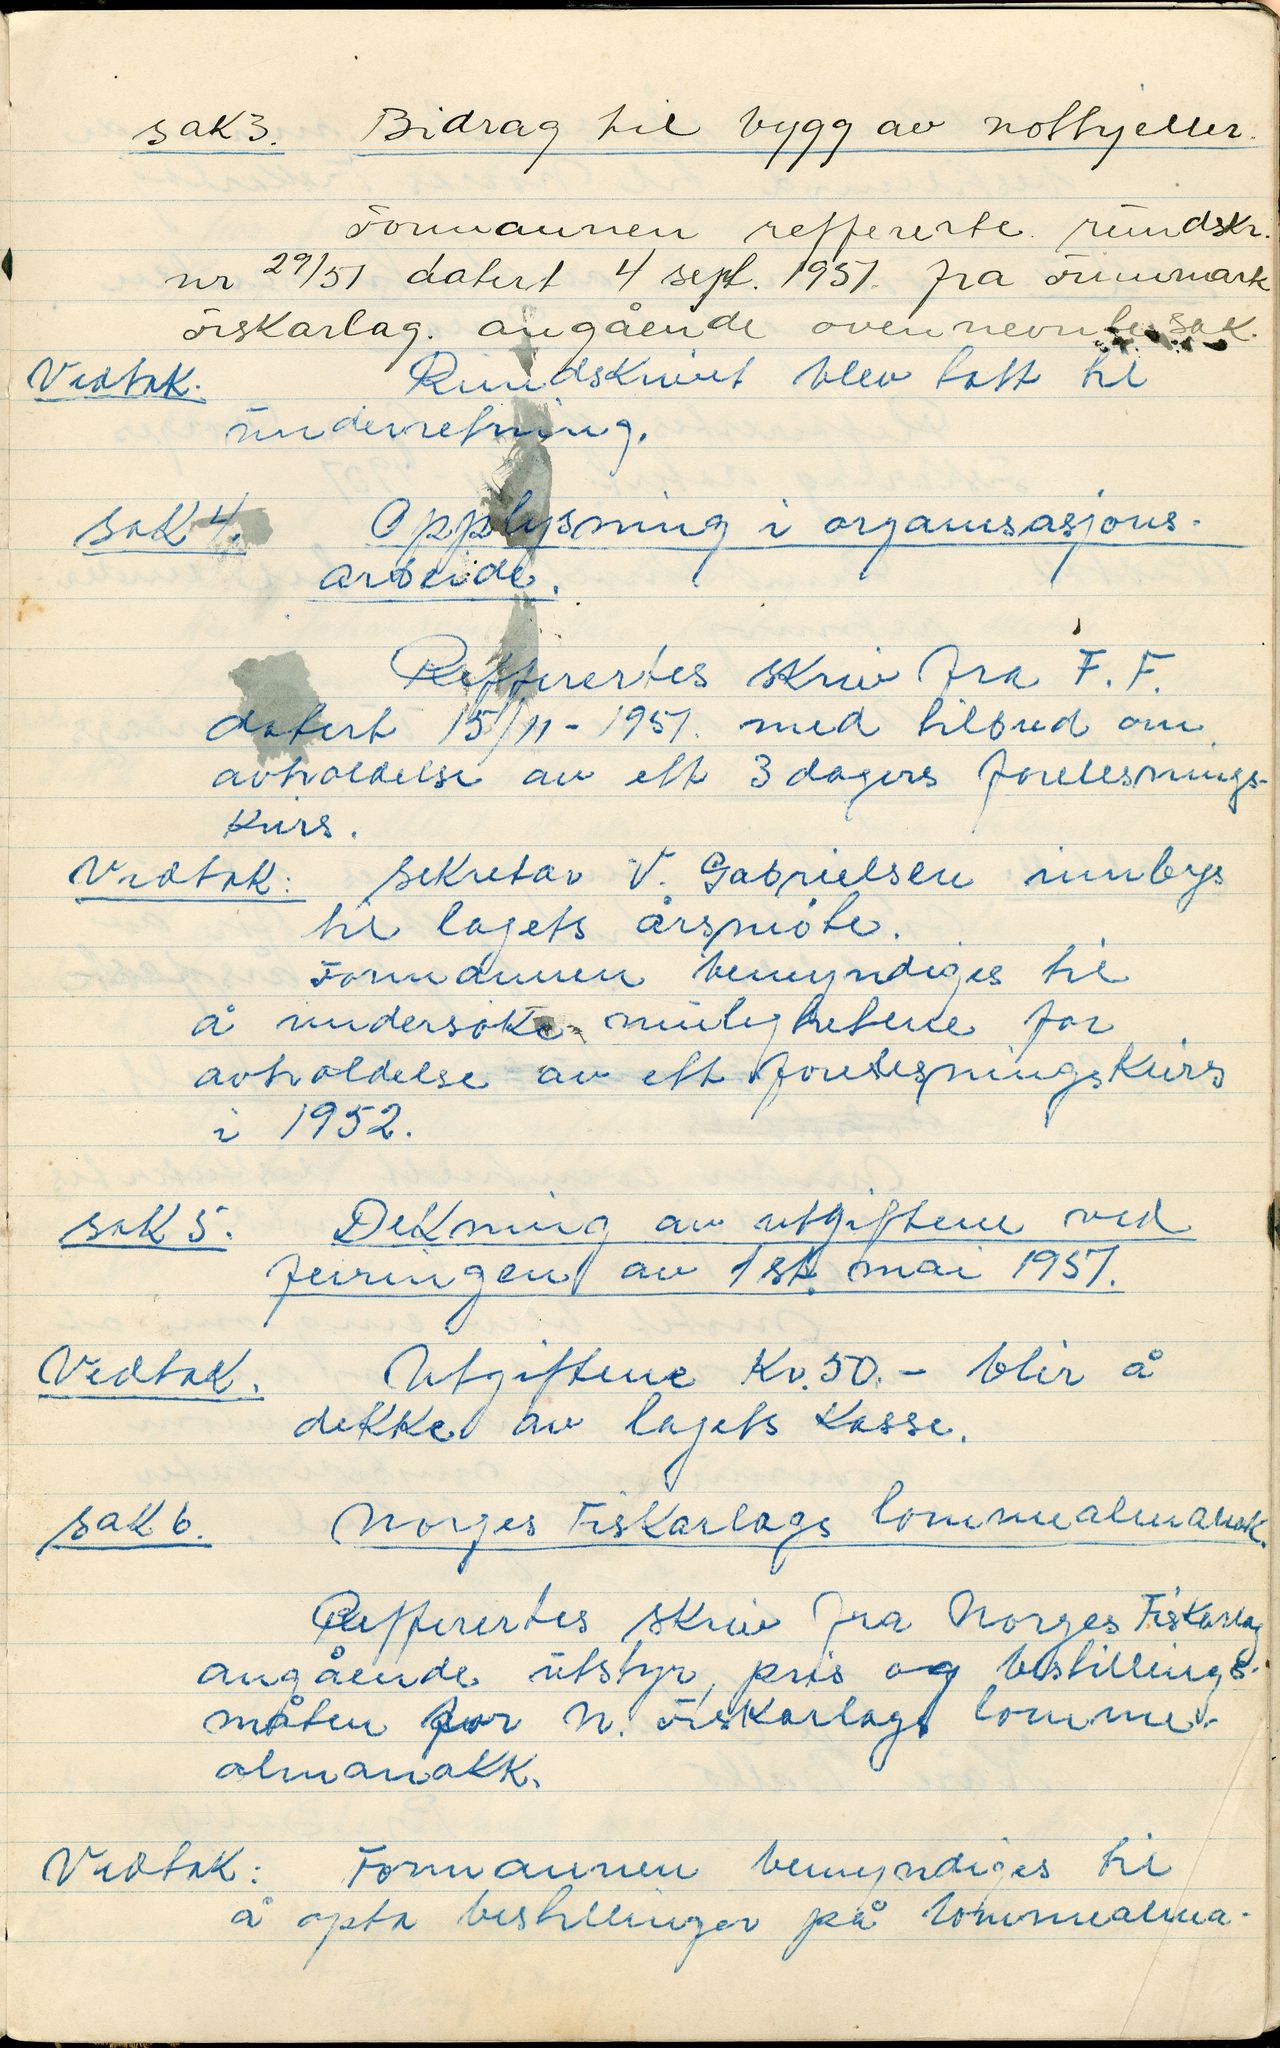 sak 3. Bidrag til bygg av nothjeller.
Formannen reffererte rundskr.
nr 29/51 datert 4 sept. 1951. fra Finnmark
Fiskarlag. angående ovennevnte sak.
Vedtak. Rundskrivet blev tatt til
underretning.
sak 4. Opplysning i organisasjons-
arbeide.
Refferertes skriv fra F. F.
datert 15/11 - 1951. med tilbud om
avholdelse av ett 3 dagers forelesnings-
kurs.
Vedtak: sekretær V. Gabrielsen innbys
til lagets årsmøte.
Formannen bemyndiges til
å undersøke mulighetene for
avholdelse av ett forelesningskurs
i 1952.
sak 5. Dekning av utgiftene ved
feiringen av 1st. mai 1951.
Vedtak. Utgiftene Kr. 50.- blir å
dekke av lagets kasse.
sak 6. Norges Fiskarlags lommealmanak.
Refferertes skriv fra Norges Fiskarlag
angående utstyr, pris og bestillings-
måten for N. Fiskarlags lomme-
almanakk.
Vedtak: Formannen bemyndiges til
å opta bestillinger på lommealma-